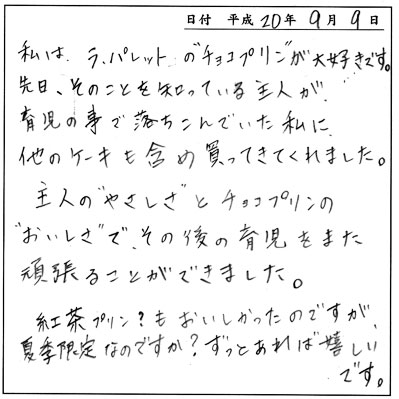 日付 平成20年9月9日
私は、ラ・パレットの"チョコプリン"が大好きです。
先日、そのことを知っている主人が、
育児の事で落ちこんでいた私に、
他のケーキも含め買ってきてくれました。
主人の"やさしさ"とチョコプリンの
"おいしさ"で、その後の育児をまた
頑張ることができました。
紅茶プリン?もおいしかったのですが、
夏季限定なのですか?ずっとあれば嬉しい
です。